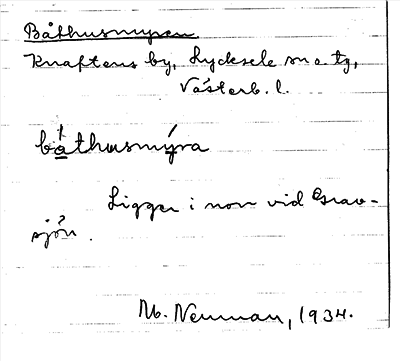 Båthusmyran
Knaftens by, Lycksele sn o. tg,
Västerb. l.
båthusmýra
Ligger i norr vid Grav-
sjön.
M. Neuman, 1934.